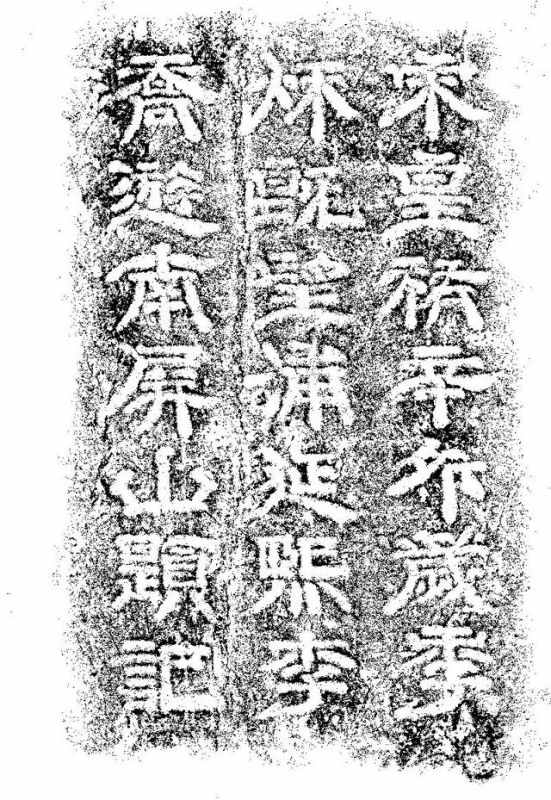 宋皇祐辛卯歲季
秌既望浦延熙李
喬遊南屏山題記